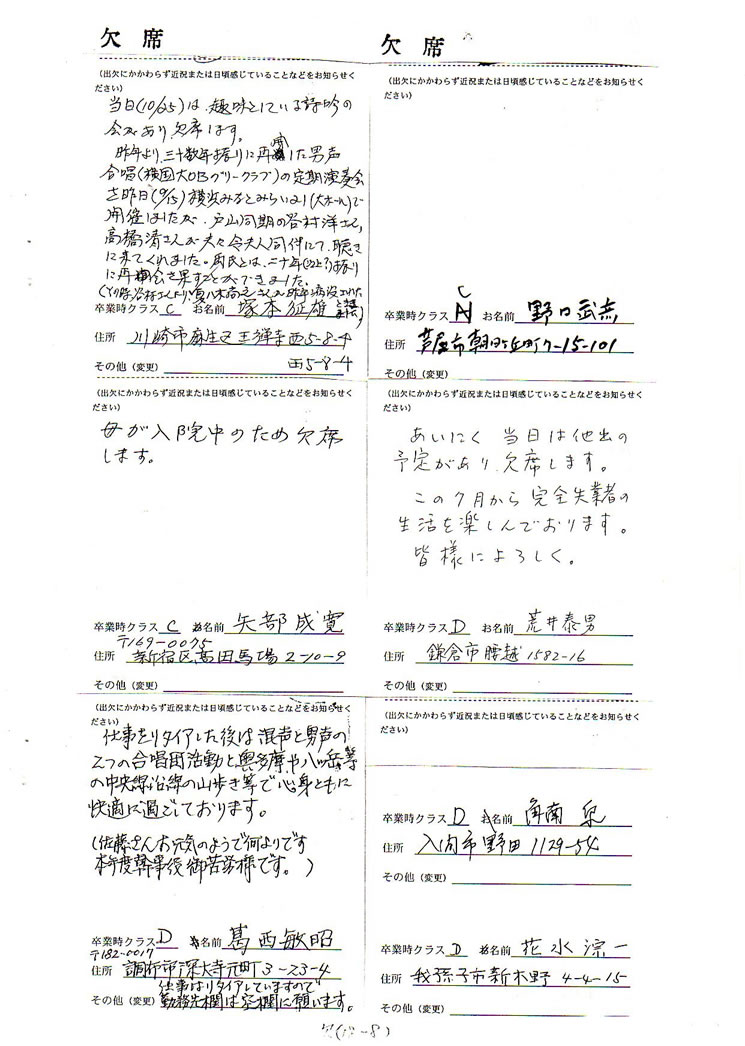 欠席
(出欠にかかわらず近況または日頃感じていることなどをお知らせく
ださい)
当日(10/25)は、趣味としている詩吟の
会があり欠席します。
昨年より、三十数年振りに再開した男声
合唱(横国大OBグリークラブ)の定期演奏会
を昨日(9/15)横浜みなとみらい(大ホール)で
開催しましたが、戸山同期の谷村洋さん,
高橋清さんが夫々令夫人同伴にて、聴き
に来てくれました。両氏とは、二十年(以上?)振り
に再会を果すことができました。
卒業時クラス C お名前 塚本征雄
住所 川崎市麻生区王禅寺西5-8-4
西5-8-4
その他(変更)
欠席
(出欠にかかわらず近況または日頃感じていることなどをお知らせく
ださい)
C
卒業時クラス お名前 野口武志
住所 芦屋市朝日ヶ丘町7-15-101
その他(変更)
(出欠にかかわらず近況または日頃感じていることなどをお知らせく
ださい)
母が入院中のため欠席
します。
卒業時クラス C お名前 矢部成寛
〒169-0075
住所 新宿区高田馬場2-10-9
その他(変更)
(出欠にかかわらず近況または日頃感じていることなどをお知らせく
ださい)
あいにく 当日は他出の
予定があり、欠席します。
この7月から完全失業者の
生活を楽しんでおります。
皆様によろしく。
卒業時クラス D お名前 荒井泰男
住所 鎌倉市腰越1582-16
その他(変更)
(出欠にかかわらず近況または日頃感じていることなどをお知らせく
ださい)
仕事をリタイアした後は混声と男声の
2つの合唱団活動と奥多摩や八ヶ岳等
の中央線沿線の山歩き等で心身ともに
快適に過ごしております。
(佐藤さんお元気のようで何よりです
本年度幹事役御苦労様です。)
卒業時クラス D お名前 葛西敏昭
〒182-0017
住所 調布市深大寺元町3-23-4
仕事はリタイアしていますので
その他(変更) 勤務先欄は空欄に願います。
(出欠にかかわらず近況または日頃感じていることなどをお知らせく
ださい)
卒業時クラス D お名前 角南
住所 入間市野田1129-54
その他(変更)
卒業時クラス D お名前 花水 一
住所 我孫子市新木野4-4-15
その他(変更)